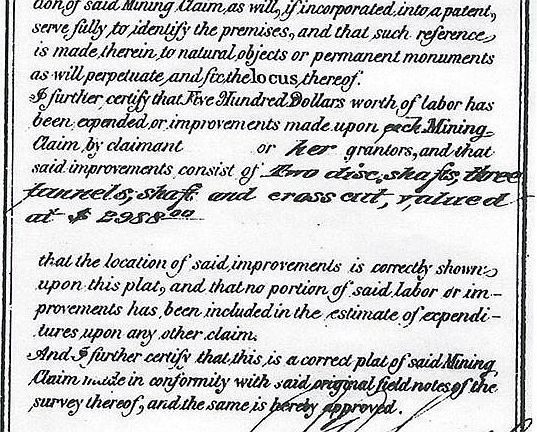 tion of said Mining Claim, as will, if incorporated, into a patent,
serve fully, to identify the premises, and that such reference
is made, therein, to natural objects or permanent monuments
as will perpetuate, and fix, the locus, thereof.
I further certify that Five Hundred Dollars worth of labor has
been expended, or improvements made upon each Mining
Claim, by claimant or her grantors, and that
said improvements consist of Two disc. shafts, three
tunnels, shaft and cross cut, valued
at $ 2988 00
that the location of said, improvements is correctly shown
upon this plat, and that no portion of said, labor or im-
provements has, been included in the estimate of expendi-
tures upon any other claim.
And I further certify that, this, is a correct plat of said Mining
Claim made in conformity with said, original field notes of the
survey thereof, and the same is hereby approved.